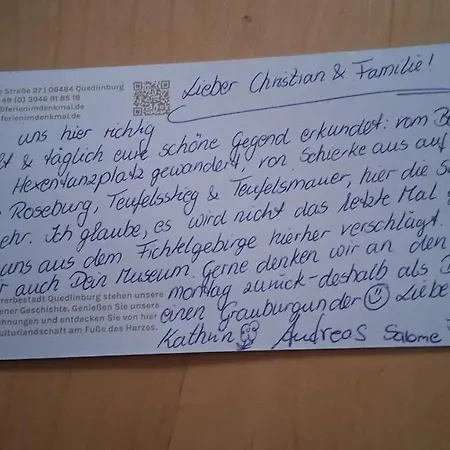 Straße 27 | 06484 Quedlinburg
49 (0) 3946 91 85 18
@ferienimdenkmal.de
ferienimdenkmal.de
Lieber Christian & Familie!
uns hier richtig
& täglich eure schöne Gegend erkundet: vom
Hexentanzplatz gewandert, von Schierke aus auf
Roseburg, Teufelsstieg & Teufelsmauer, hier die
ehr. Ich glaube, es wird nicht das letzte Mal
uns aus dem Fichtelgebirge hierher verschlägt.
auch Dein Museum. Gerne denken wir an den
montag zurück - deshalb als
einen Grauburgunder Liebe
erbestadt Quedlinburg stehen unsere
ener Geschichte. Genießen Sie unsere
ohnungen und entdecken Sie von hier
ulturlandschaft am Fuße des Harzes.
Kathrin Andreas Salome